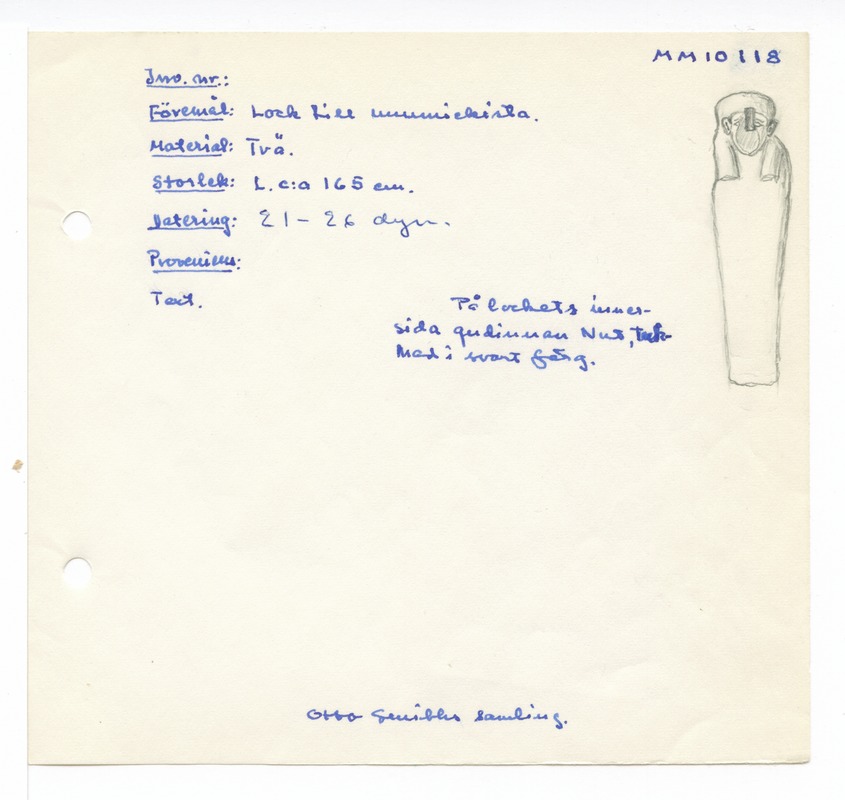 MM10118
Inv. nr.:
Föremål: Lock till mumiekista.
Material: Trä.
Storlek: L. c:a 165 cm.
Datering: 21 – 26 dyn.
Proveniens:
Text.
På lockets inner-
sida gudinnan Nut, teck-
nad i svart färg.
Otto Smiths samling.